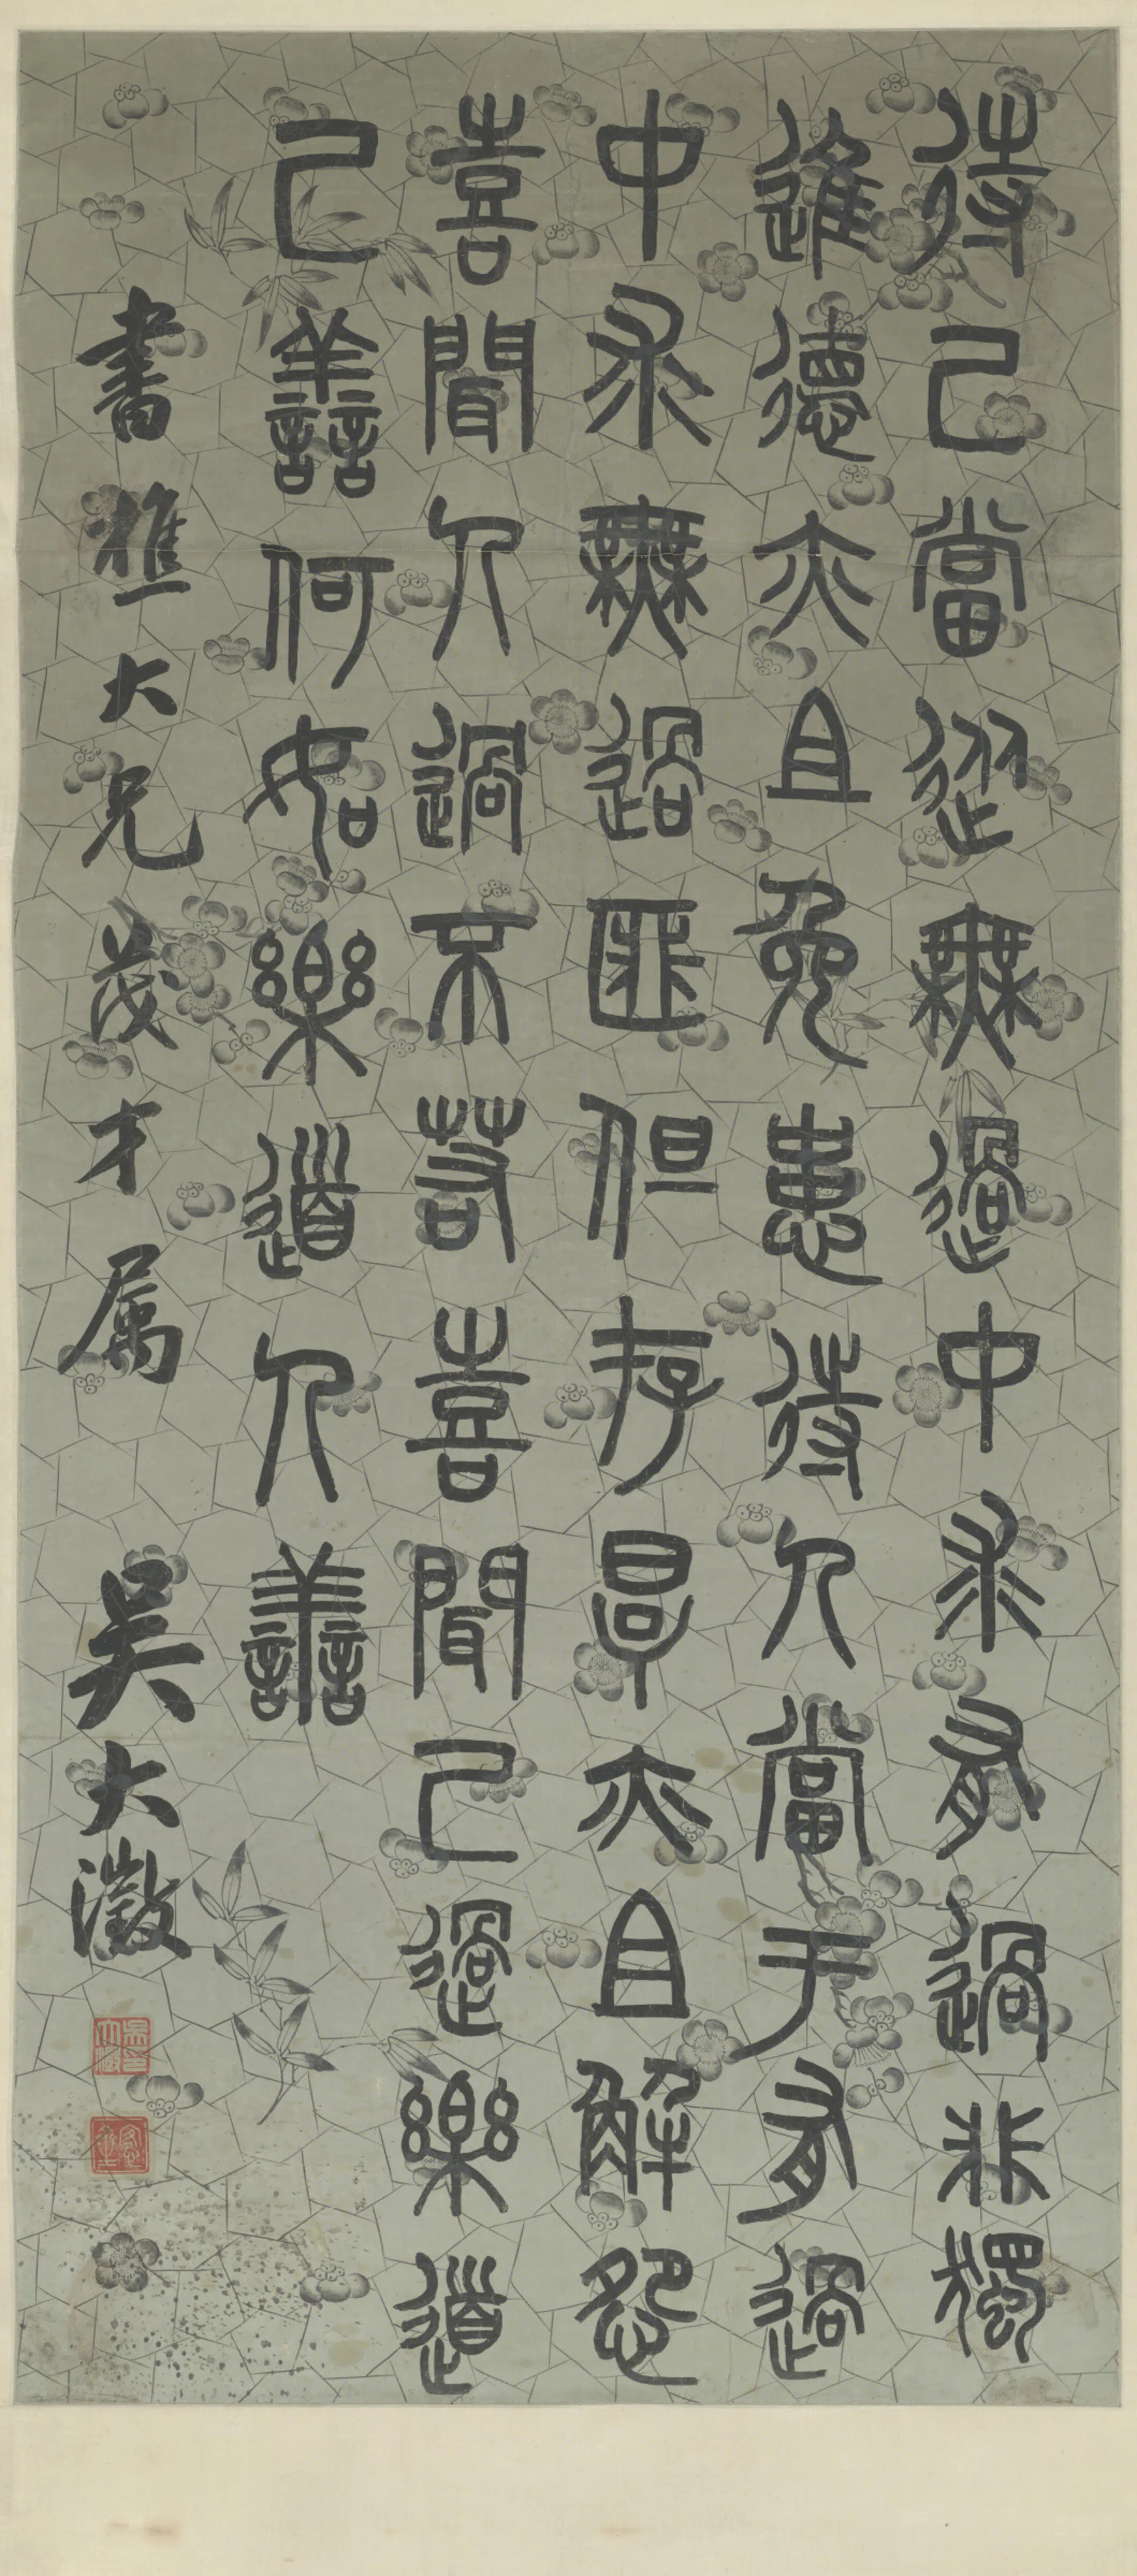 待己當從無過中求有過非獨
進德亦且免患待人當于有過
中求無過匪但存厚亦且解怨
喜聞人過不若喜聞己過樂道
己善何如樂道人善
書樵大兄茂才属 吳大澂
吳大澂印